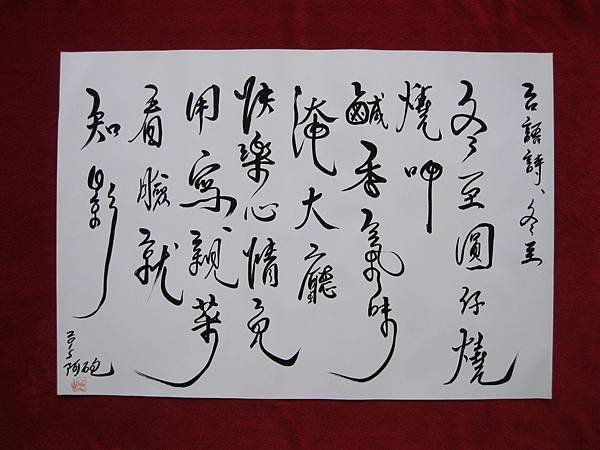 台語詩、冬至
冬至圓仔燒
燒呷
鹹香氣味
淹大廳
快樂心情免
用寫親
看臉就
知影